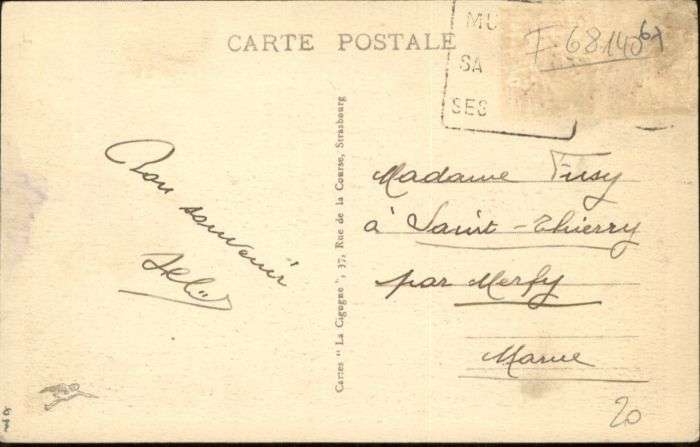 CARTE POSTALE
MU
SA
SES
F 68140
67
Bon souvenir
Cartes " La Cigogne ", 37, Rue de la Course, Strasbourg
Madame Fusy
à Saint-Thierry
par Merfy
Marne
20